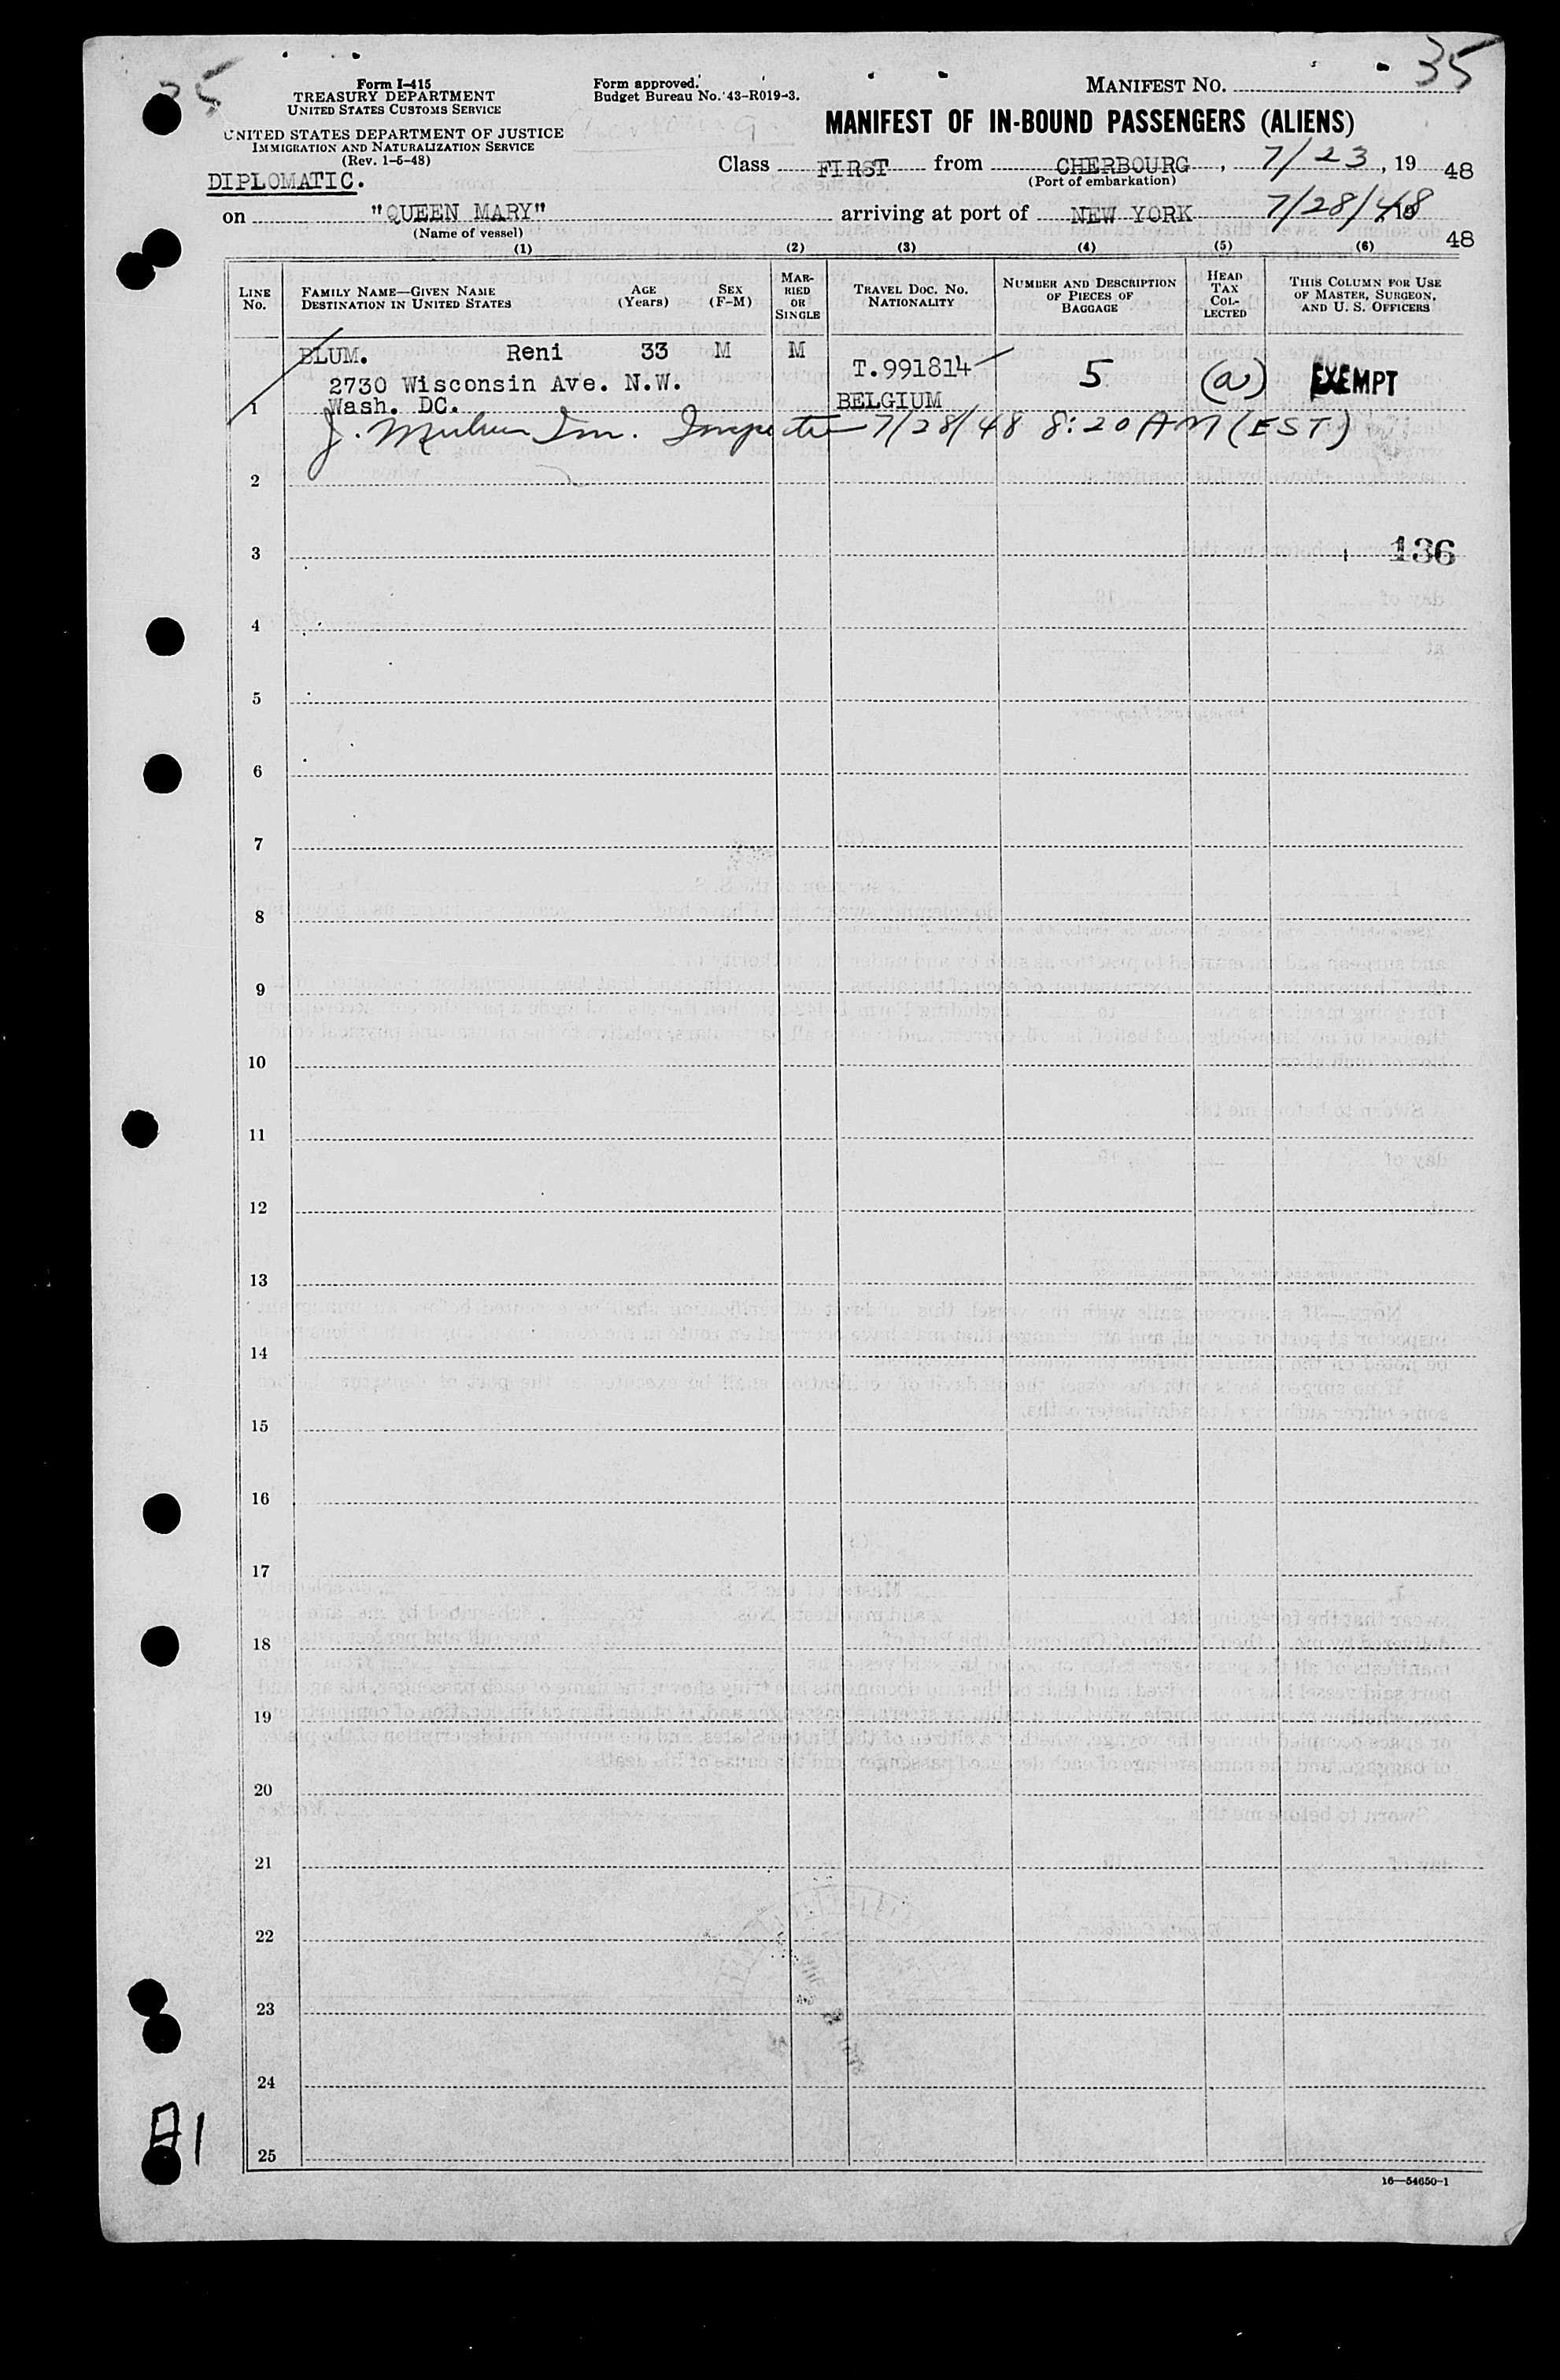 35
Form I-415
TREASURY DEPARTMENT
UNITED STATES CUSTOMS SERVICE
UNITED STATES DEPARTMENT OF JUSTICE
IMMIGRATION AND NATURALIZATION SERVICE
(Rev. 1-5-48)
DIPLOMATIC.
Form approved.
Budget Bureau No. 43-R019-3.
MANIFEST NO. 35
MANIFEST OF IN-BOUND PASSENGERS (ALIENS)
Class FIRST from CHERBOURG, 7/23, 19 48
(Port of embarkation)
on "QUEEN MARY" arriving at port of NEW YORK 7/28/48, 19 48
(Name of vessel)
(1) (2) (3) (4) (5) (6)
LINE NO.
FAMILY NAME—GIVEN NAME
DESTINATION IN UNITED STATES
AGE (Years)
SEX (F-M)
MARRIED OR SINGLE
TRAVEL DOC. NO.
NATIONALITY
NUMBER AND DESCRIPTION OF PIECES OF BAGGAGE
HEAD TAX COLLECTED
THIS COLUMN FOR USE OF MASTER, SURGEON, AND U. S. OFFICERS
BLUM. Reni 33 M M T.991814 5 (a) EXEMPT
2730 Wisconsin Ave. N.W.
1 Wash. DC. BELGIUM
J. Im. Inspector 7/28/48 8:20 AM (EST)
2
3 136
4
5
6
7
8
9
10
11
12
13
14
15
16
17
18
19
20
21
22
23
24
25
A1
16—54650-1